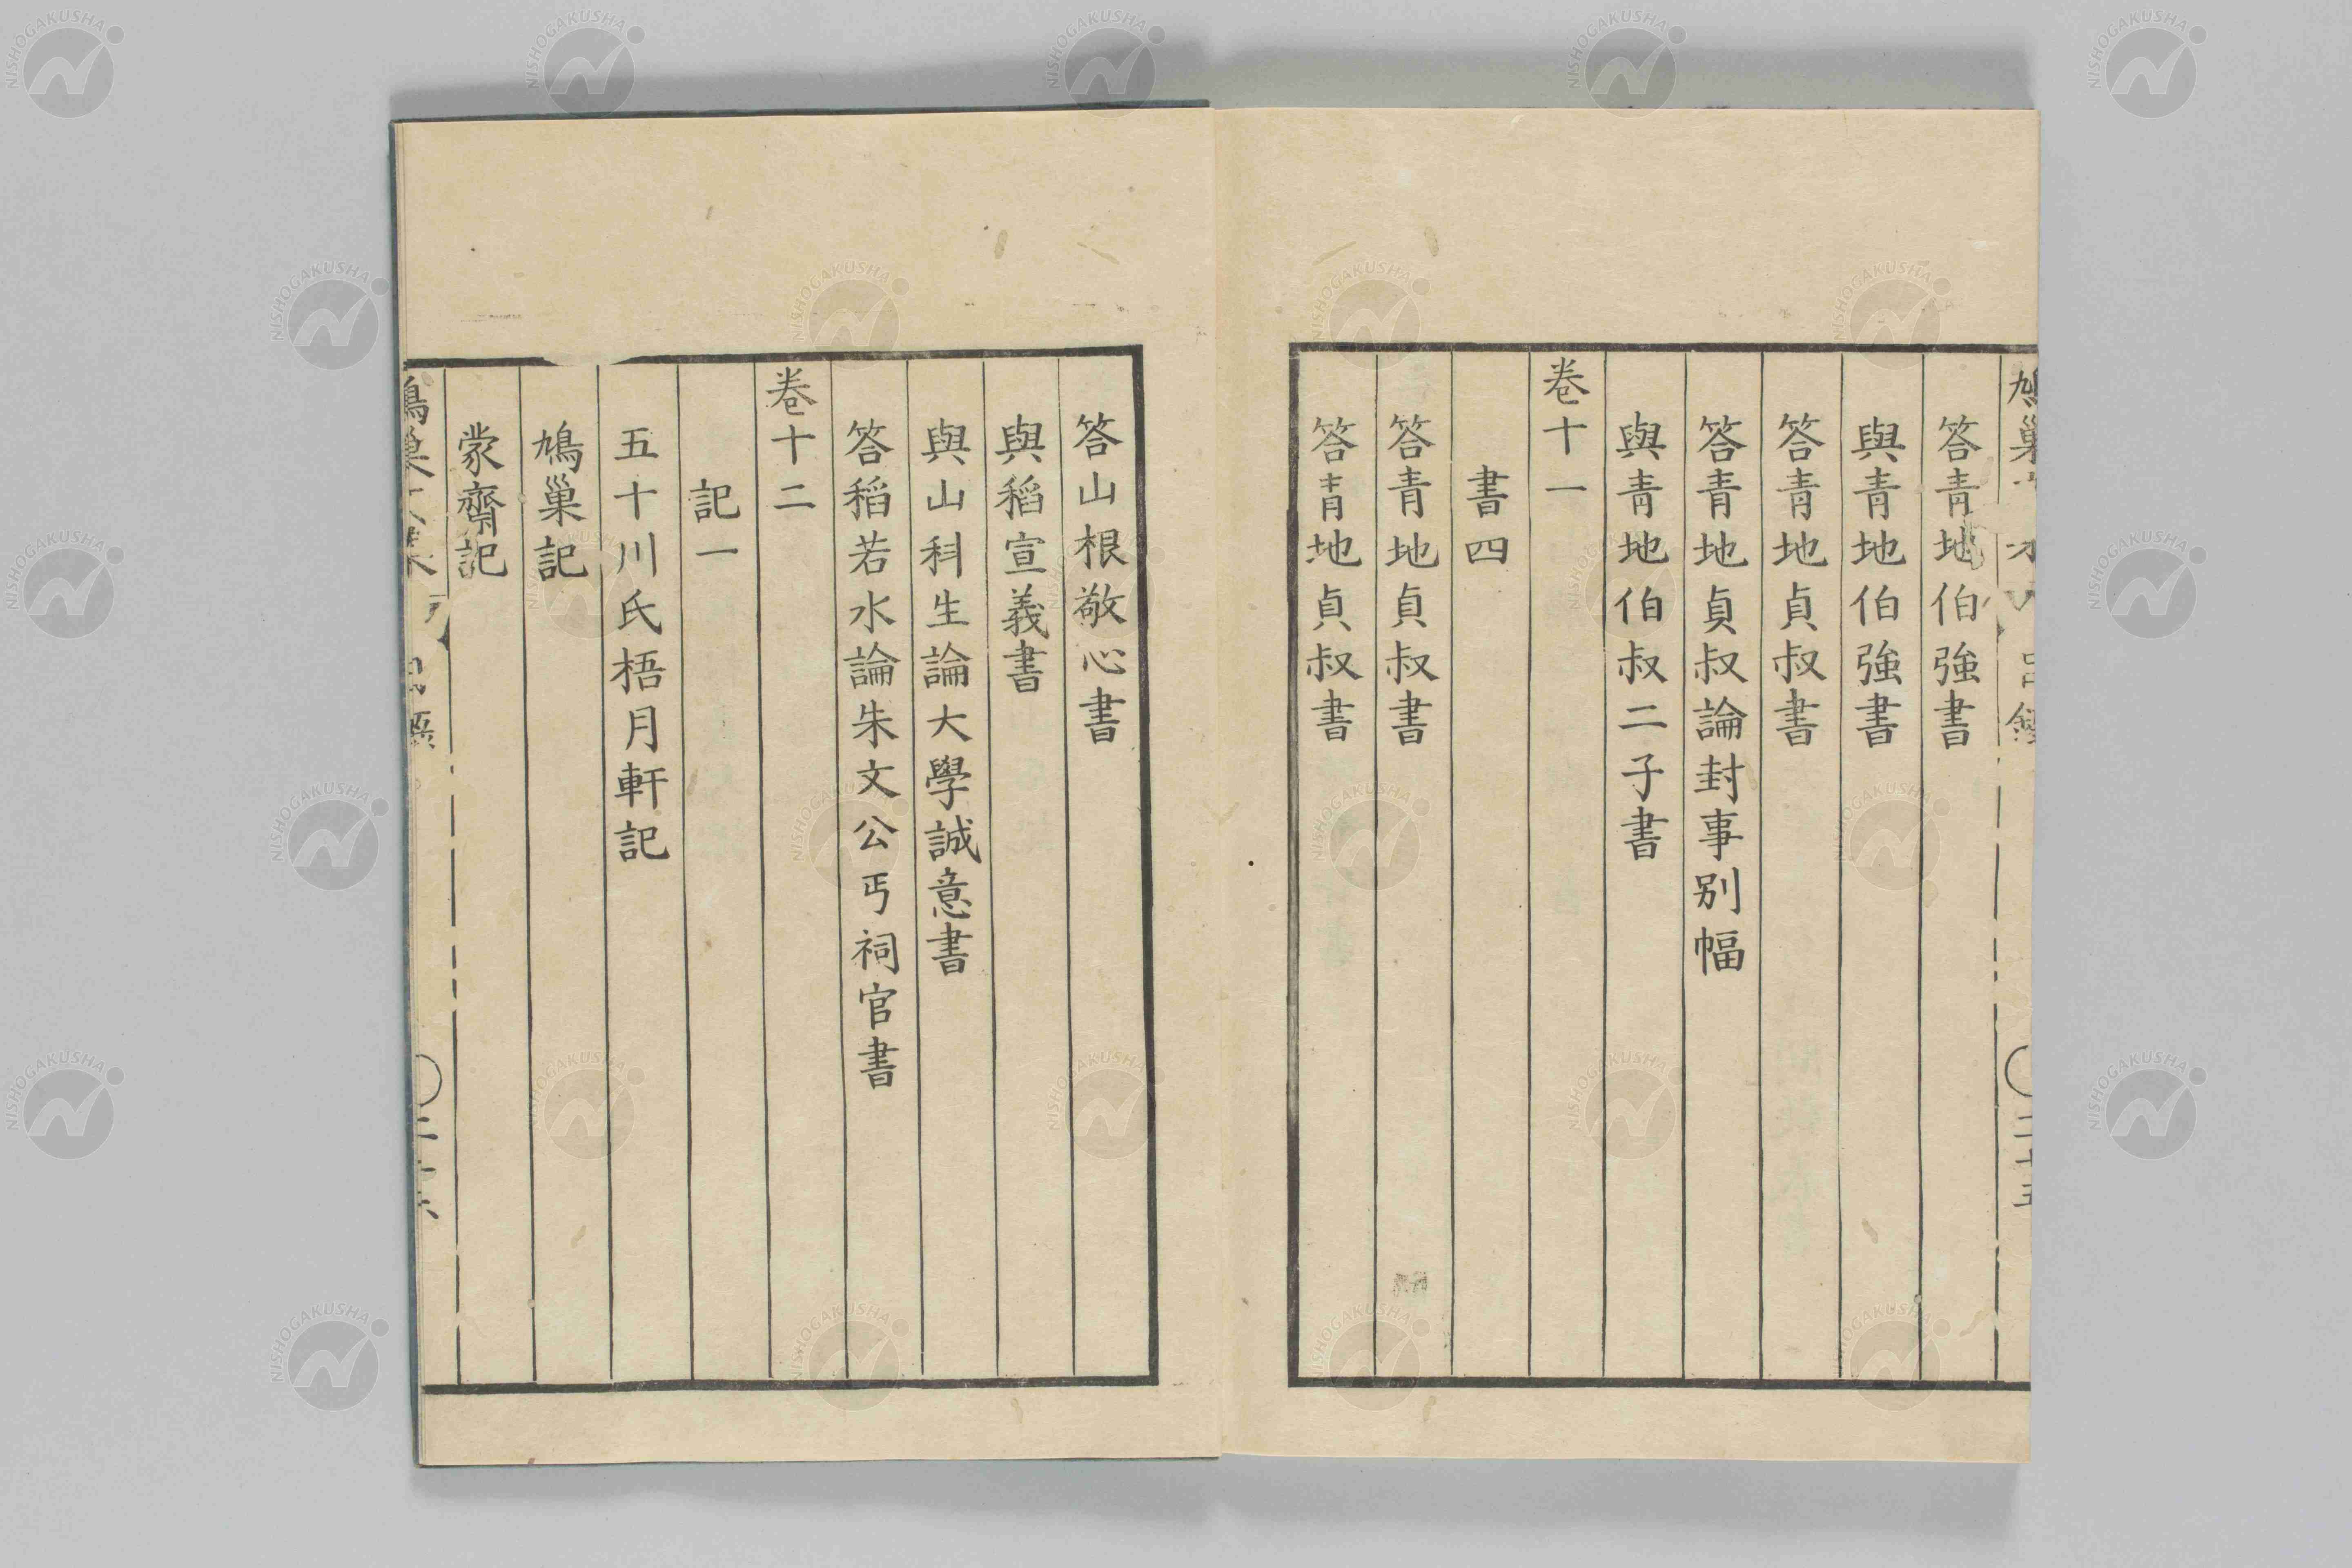 答青地伯強書
與青地伯強書
答青地貞叔書
答青地貞叔論封事別幅
與青地伯叔二子書
卷十一
書四
答青地貞叔書
答青地貞叔書
答山根敬心書
與稻宣義書
與山科生論大學誠意書
答稻若水論朱文公丐祠官書
卷十二
記一
五十川氏梧月軒記
鳩巢記
蒙齋記